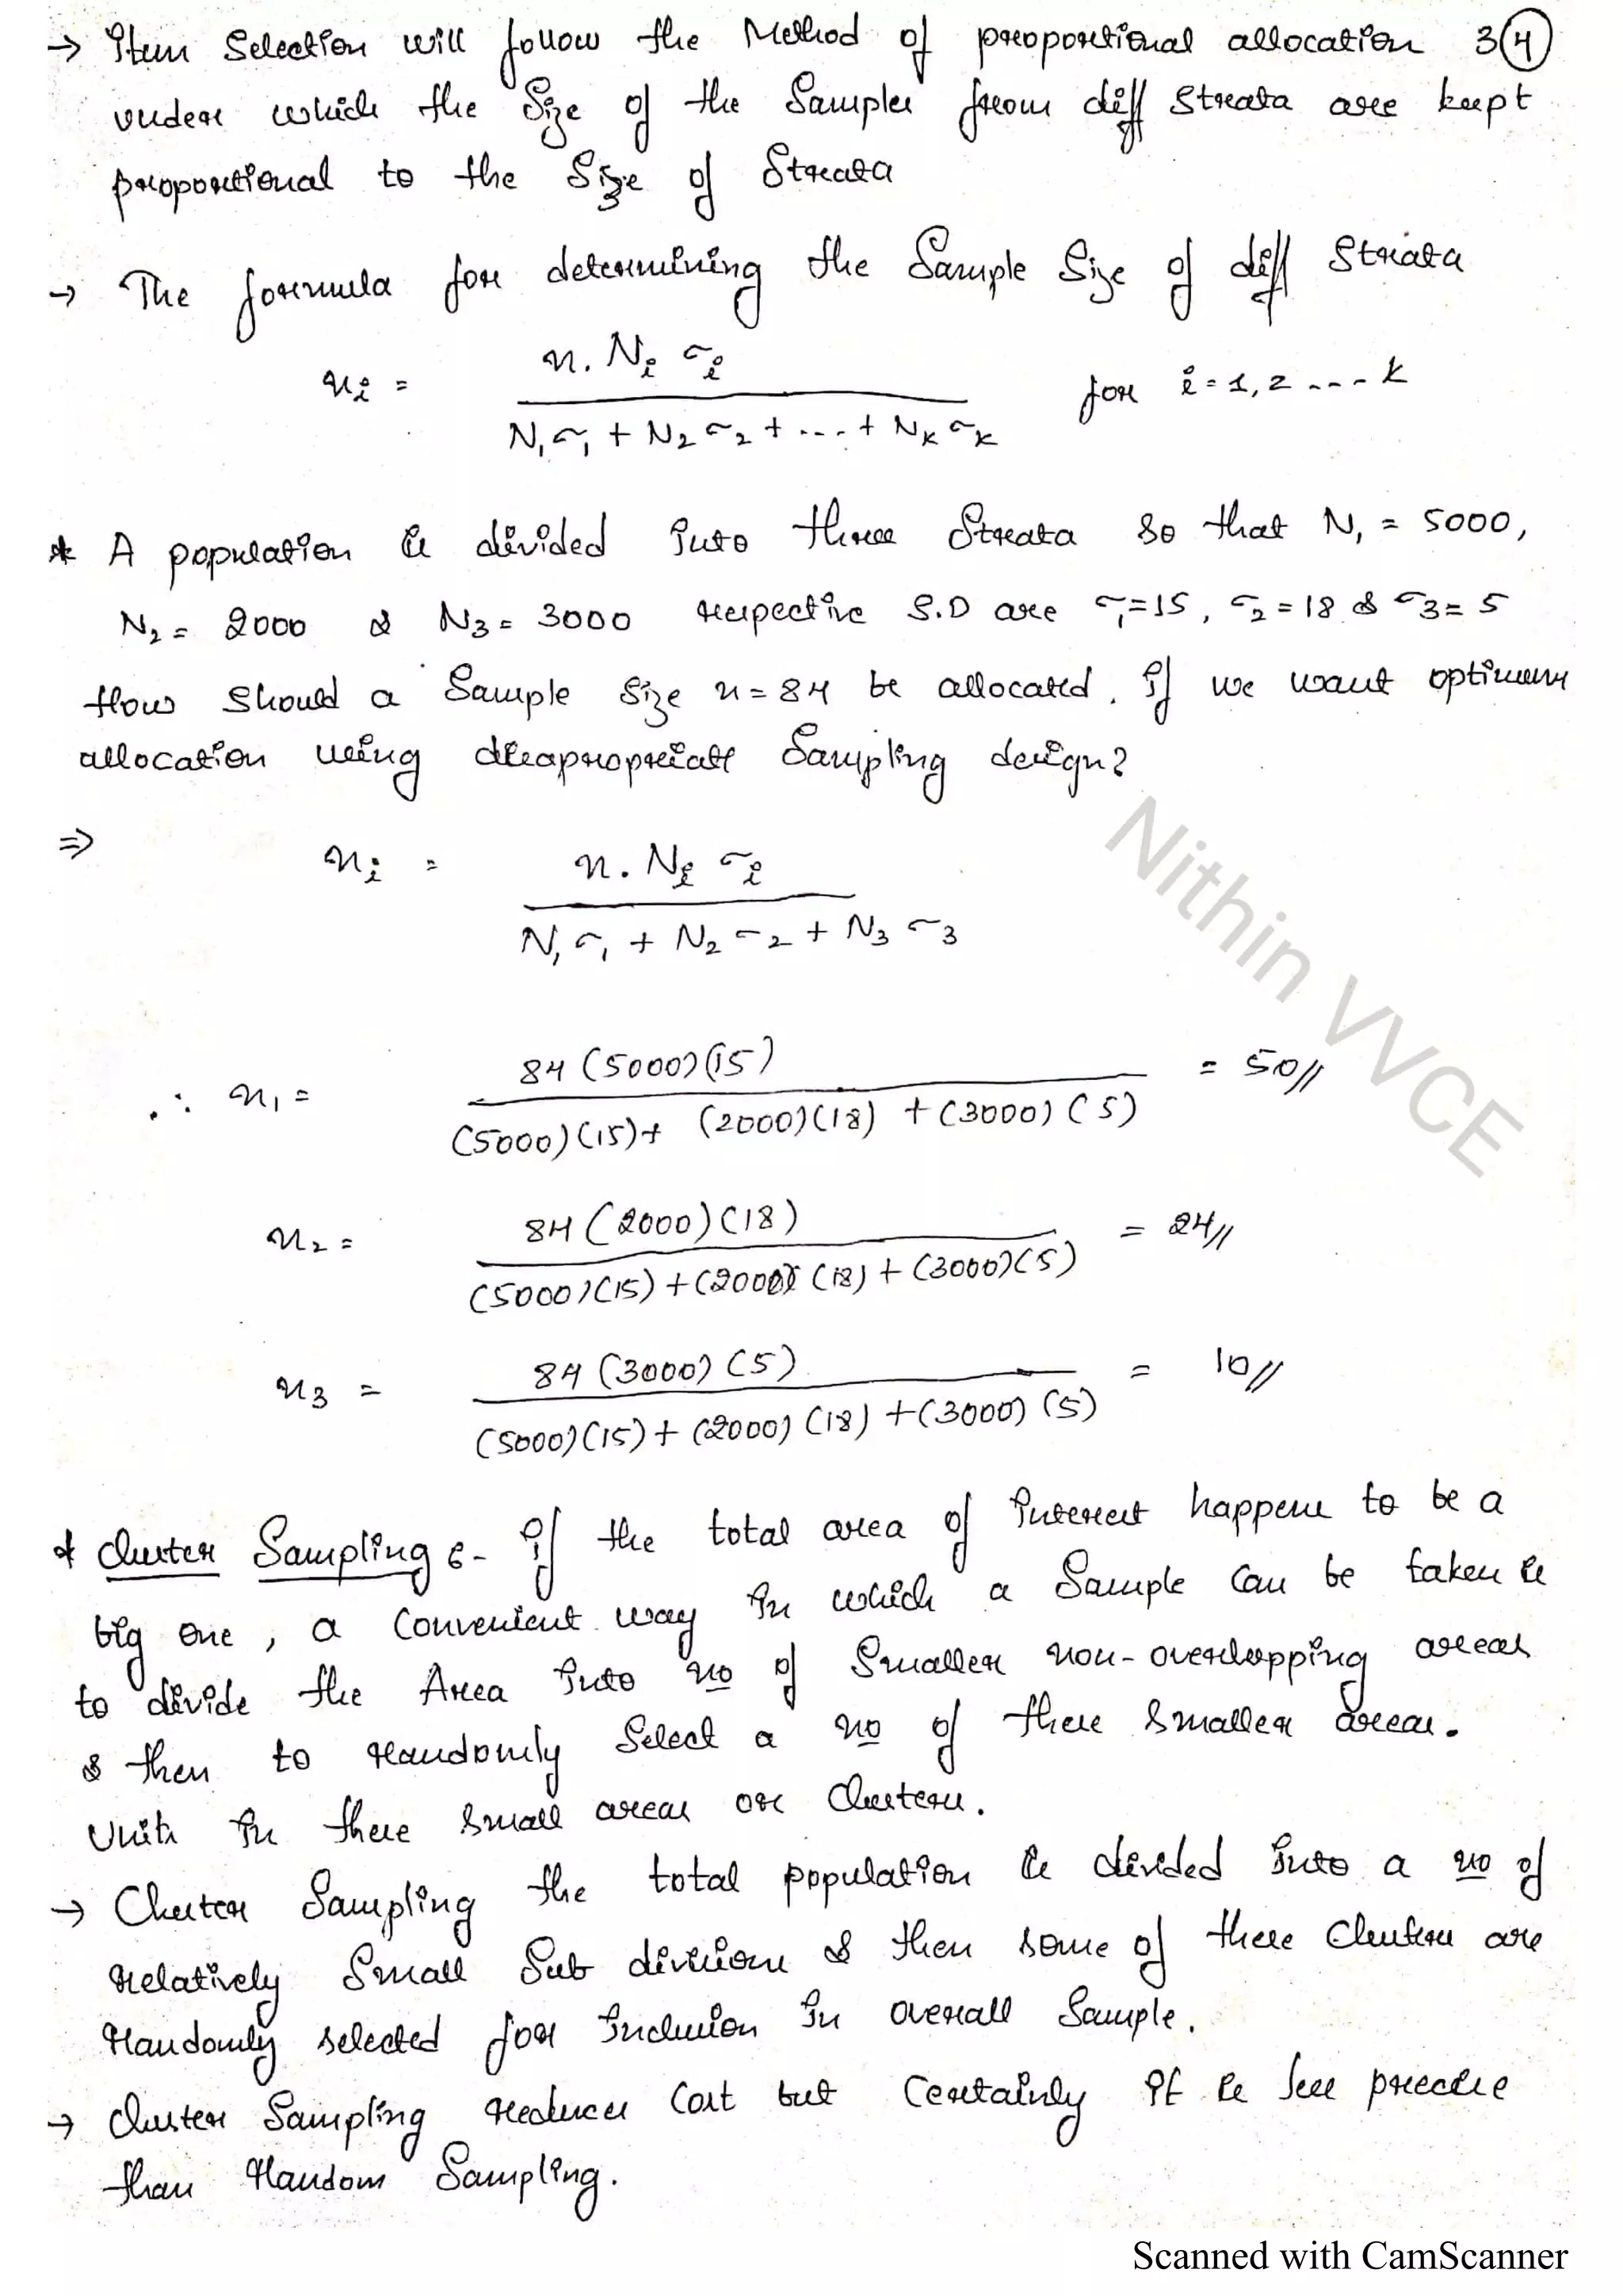 → Item Selection will follow the Method of proportional allocation 3 4
under which the Size of the Samples from diff Strata are kept
proportional to the Size of Strata
→ The formula for determining the Sample Size of diff Strata
nᵢ = n. Nᵢ σᵢ / N₁σ₁ + N₂σ₂ + ... + Nₖσₖ for i = 1, 2 ---- k
* A population is divided into three Strata so that N₁ = 5000,
N₂ = 2000 & N₃ = 3000 respective S.D are σ₁=15, σ₂=18 & σ₃=5
How Should a Sample Size n = 84 be allocated. If we want optimum
allocation using disapropriate Sampling design?
⇒ nᵢ = n. Nᵢ σᵢ / N₁σ₁ + N₂σ₂ + N₃σ₃
∴ n₁ = 84 (5000)(15) / (5000)(15)+ (2000)(18) +(3000)(5) = 50//
n₂ = 84 (2000)(18) / (5000)(15)+(2000)(18)+(3000)(5) = 24//
n₃ = 84 (3000)(5) / (5000)(15)+(2000)(18)+(3000)(5) = 10//
* Cluster Sampling :- If the total area of interest happens to be a
big one, a Convenient way in which a Sample Can be taken is
to divide the Area into no of Smaller non-overlapping areas
& then to randomly Select a no of these Smaller areas.
Units in these Small areas or Clusters.
→ Cluster Sampling the total population is divided into a no of
relatively Small Sub divisions & then some of these Clusters are
Randomly selected for inclusion in overall Sample.
→ Cluster Sampling reduces Cost but Certainly it is less precise
than Random Sampling.
Nithin VVCE
Scanned with CamScanner